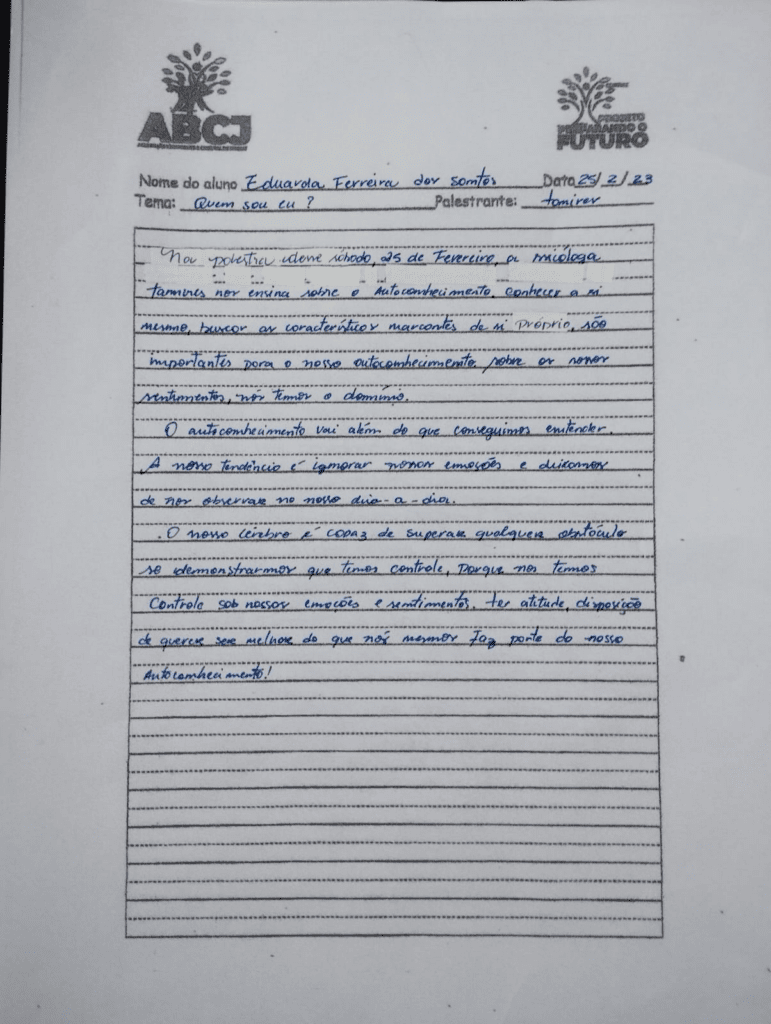 ABCJ
PROJETO
PREPARANDO O
FUTURO
Nome do aluno Eduarda Ferreira dos Santos Data 25/2/23
Tema: Quem sou eu? Palestrante: tamires
Na palestra deste sábado, 25 de Fevereiro, a psicóloga
tamires nos ensina sobre o Autoconhecimento. Conhecer a si
mesmo, buscar as características marcantes de si Próprio, são
importantes para o nosso autoconhecimento. sobre os nossos
sentimentos, nós temos o domínio.
O autoconhecimento vai além do que conseguimos entender.
A nossa tendência é ignorar nossas emoções e deixamos
de nos observar no nosso dia-a-dia.
O nosso cérebro é capaz de superar qualquer obstáculo
se demonstrarmos que temos controle, Porque nos temos
Controle sob nossas emoções e sentimentos. ter atitude, disposição
de querer ser melhor do que nós mesmos faz parte do nosso
Autoconhecimento!